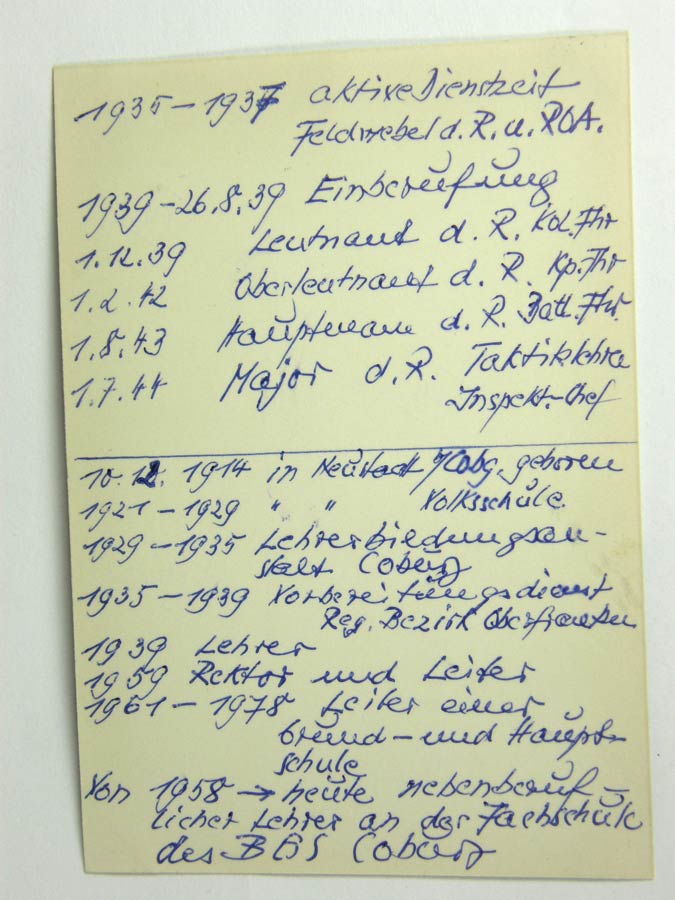 1935 – 1937 aktive Dienstzeit
Feldwebel d. R. u. ROA.
1939 – 26.8.39 Einberufung
1.12.39 Leutnant d. R. Kol. Fhr
1.2.42 Oberleutnant d. R. Kp. Fhr
1.8.43 Hauptmann d. R. Batl. Fhr.
1.7.44 Major d. R. Taktiklehre
Inspekt.-Chef
10.12. 1914 in Neustadt b/Cobg. geboren
1921 – 1929 " " Volksschule
1929 – 1935 Lehrerbildungsan-
stalt Coburg
1935 – 1939 Vorbereitungsdienst
Reg. Bezirk Oberfranken
1939 Lehrer
1959 Rektor und Leiter
1961 – 1978 Leiter einer
Grund- und Haupt-
schule
Von 1958 → heute nebenberuf-
licher Lehrer an der Fachschule
des BGS Coburg